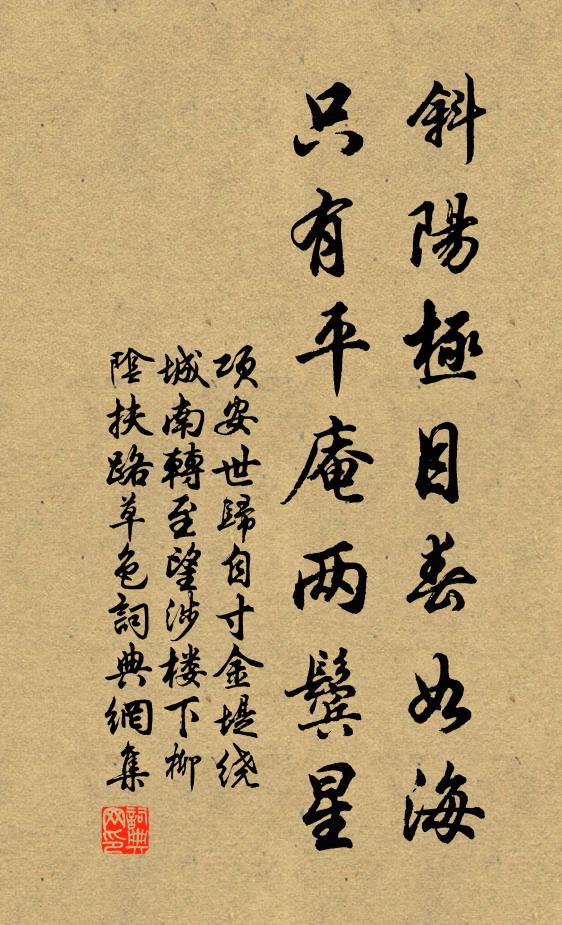 斜陽極目春如海
只有平庵两鬓星
项安世歸自寸金堤绕
城南轉至望涉楼下柳
陰扶路草色詞典網集
詞典
网印